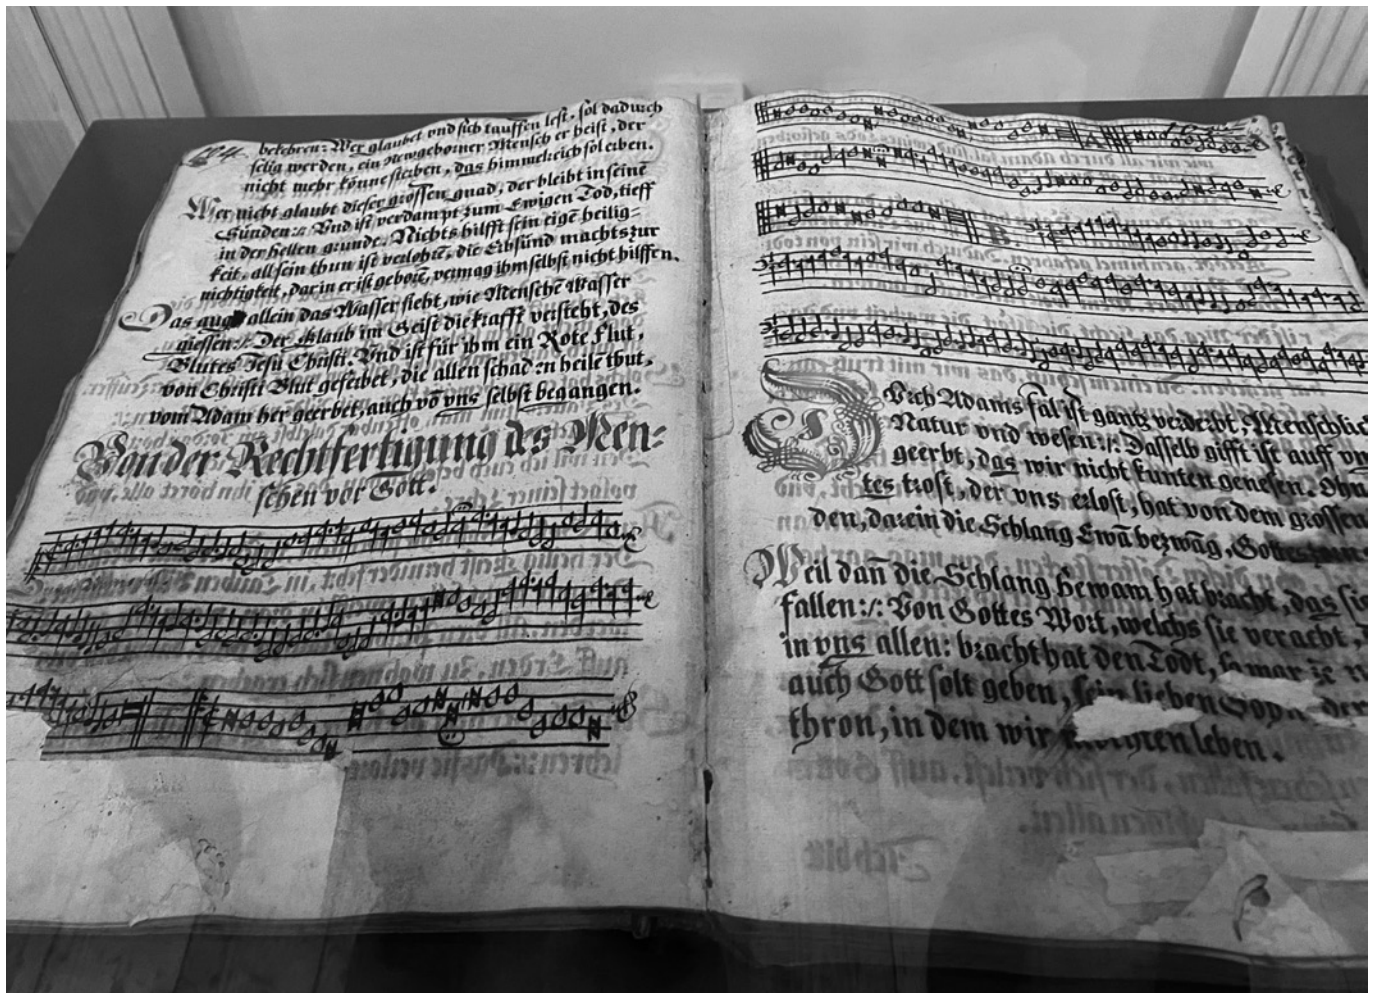 bekehren: Wer glaubet vnd sich tauffen lest, sol dadurch
selig werden, ein newgeborner Mensch er heist, der
nicht mehr könne sterben, das himmelreich sol erben.
Wer nicht glaubt dieser grossen gnad, der bleibt in seinē
Sünden:/: Vnd ist verdampt zum Ewigen Tod, tieff
in der hellen grunde. Nichts hilfft sein eigē heilig=
keit, all sein thun ist verlohrē, die Erbsünd machts zur
nichtigkeit, darin er ist geborē, vermag ihm selbst nicht hilffen.
Das aug allein das Wasser sieht, wie Menschē Wasser
giessen:/: Der Glaub im Geist die krafft versteht, des
Blutes Jesu Christi. Vnd ist für ihm ein Rote flut,
von Christi Blut geferbet, die allen schaden heile thut,
vom Adam her geerbet, auch vō vns selbst begangen.
Von der Rechtfertigung des Men=
schen vor Gott.
A
B
Dvrch Adams fal ist gantz verderbt, Menschlich
Natur vnd wesen:/: Dasselb gifft ist auff vns
geerbt, das wir nicht kunten genesen. Ohn
tes trost, der vns erlost, hat von dem grossen
den, darein die Schlang Ewā bezwāg, Gottes
Weil dañ die Schlang Hewam hat bracht, das sie
fallen:/: Von Gottes Wort, welchs sie veracht,
in vns allen: bracht hat den Todt,
auch Gott solt geben, sein lieben der
thron, in dem wir leben.